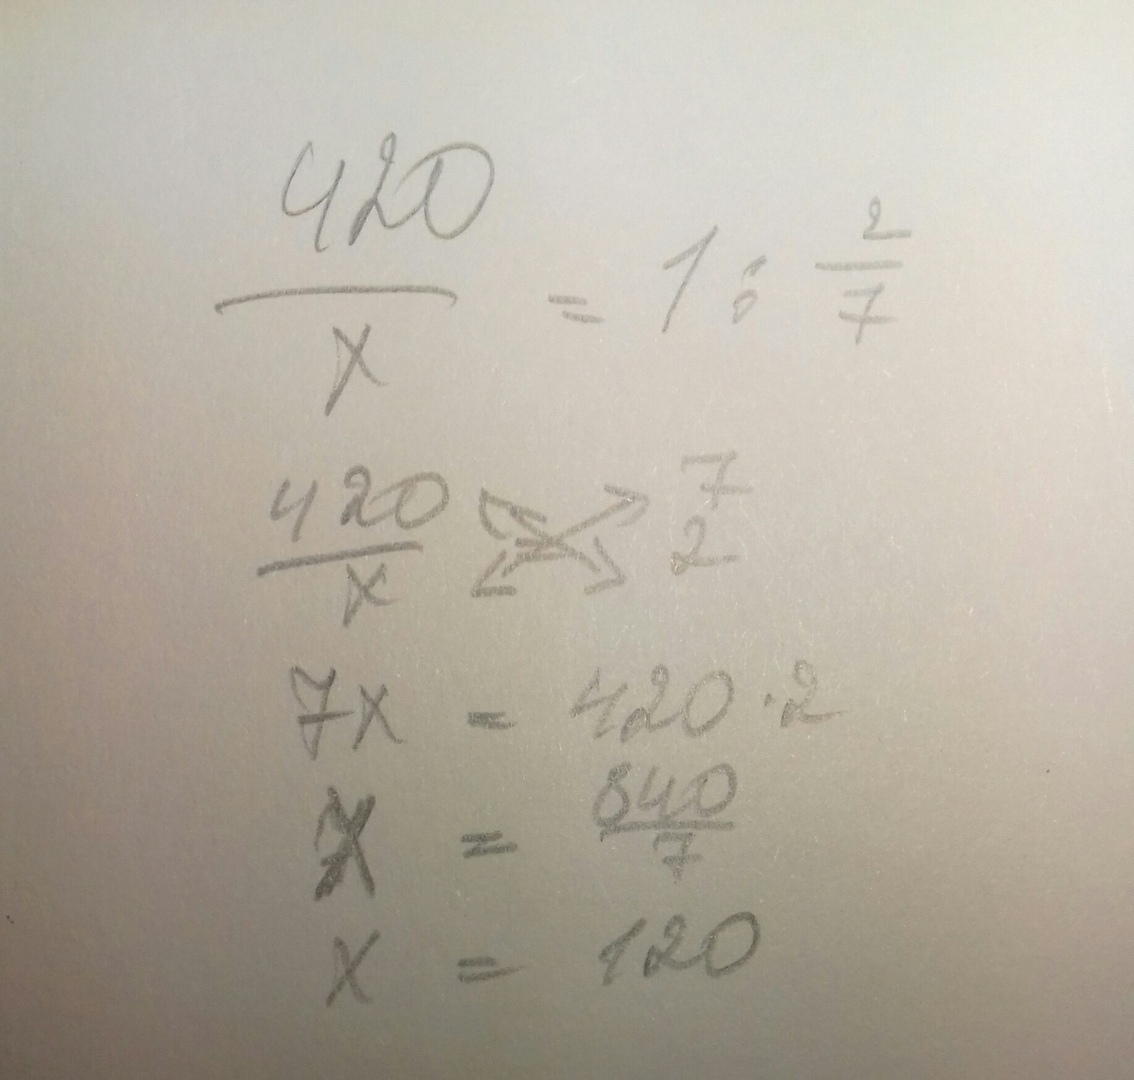 420/x = 1 : 2/7
420/x 7 2
7x = 420 · 2
x = 840/7
x = 120